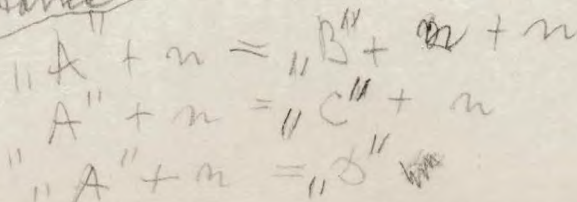 „A" + n = „B" + n + n
„A" + n = „C" + n
„A" + n = „D"